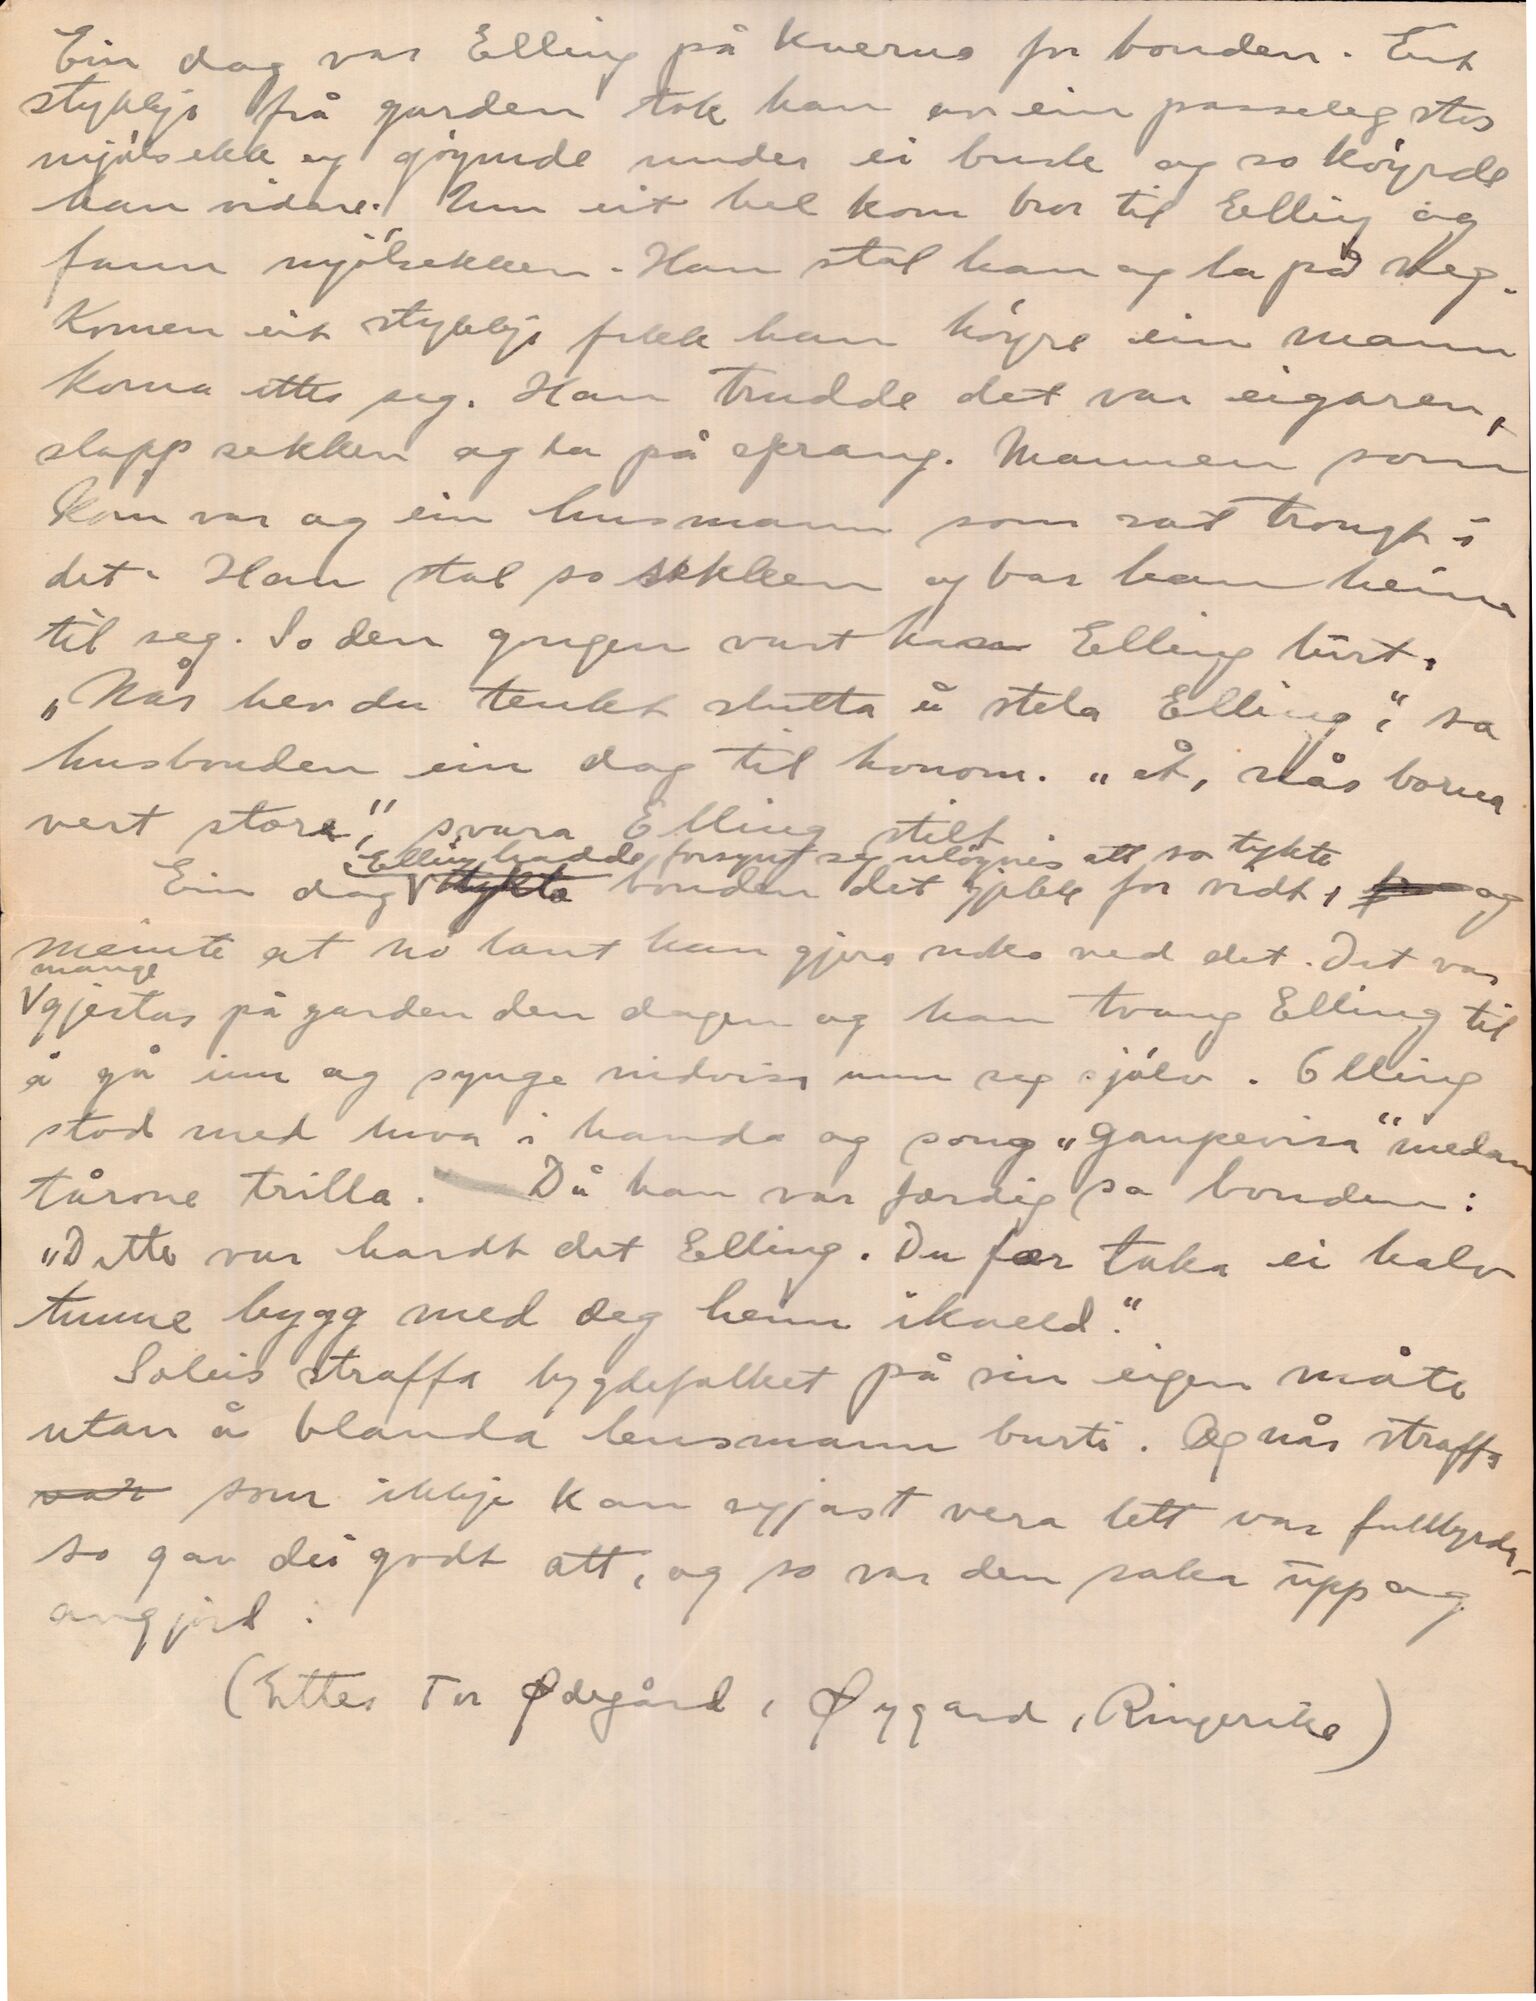 Ein dag var Elling på kverna for bonden. Eit
stykkje frå garden tok han av ein passeleg stor
mjølsekk og gjøymde under ei busk og so køyrde
han vidare. Um eit bel kom bror til Elling og
fann mjølsekken. Han stal han og la på veg.
Komen eit stykkje fekk han høyre ein mann
koma etter seg. Han trudde det var eigaren,
slapp sekken og la på sprang. Mannen som
kom var og ein husmann som sat trongt i
det. Han stal so sekken og bar han heim
til seg. So den gongen vart Elling lurt.
"Når hev du tenkt slutta å stela Elling," sa
husbonden ein dag til honom. "Å, når borna
vert store," svara Elling stilt.
Elling hadde forsynt seg uløyves att so tykte
Ein dag tykte bonden det gjekk for vidt, og
meinte at no laut han gjera noko ved det. Det var
mange
gjestar på garden den dagen og han tvang Elling til
å gå inn og synge nidvisa um seg sjølv. Elling
stod med huva i handa og song "Gaupevisa" medan
tårone trilla. Då han var færdig sa bonden:
"Dette var hardt det Elling. Du fær taka ei halv
tunne bygg med deg heim ikveld."
Soleis straffa bygdefolket på sin eigen måte
utan å blanda lensmann burti. Og når straffa
var som ikkje kan segjast vera lett var fullbyrda,
so gav dei godt att, og so var den saka upp og
avgjord.
(Etter Tor Ødegård, Øygard, Ringerike)